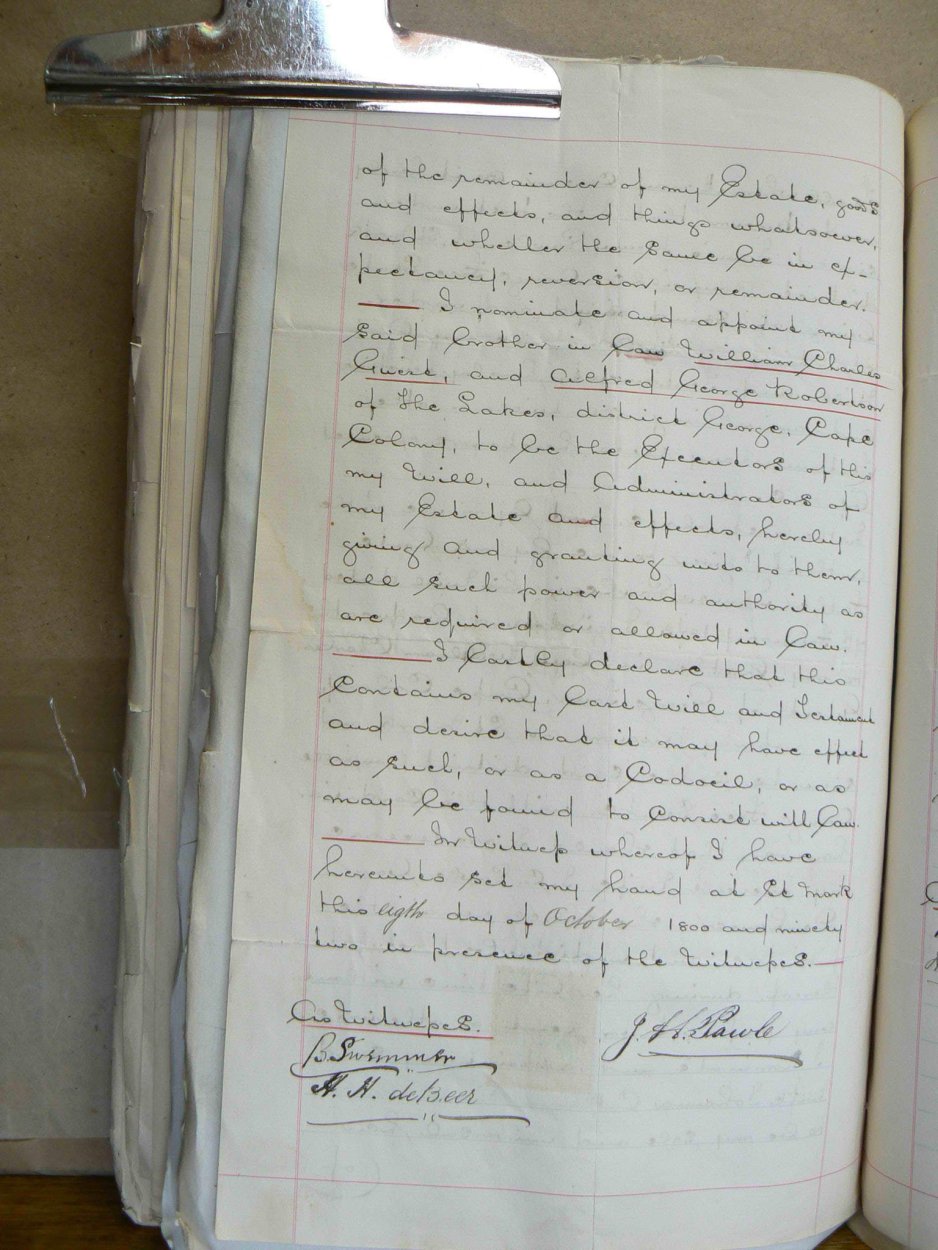 of the remainder of my Estate, goods
and effects, and things whatsoever,
and whether the same be in ex-
pectancy, reversion, or remainder.
I nominate and appoint my
said brother in Law William Charles
Guest, and Alfred George Robertson
of The Lakes, district George, Cape
Colony, to be the Executors of this
my Will, and Administrators of
my Estate and effects, hereby
giving and granting unto to them,
all such power and authority as
are required or allowed in Law.
I Lastly declare that this
Contains my Last Will and Testament
and desire that it may have effect
as such, or as a Codocil, or as
may be found to Consist will Law.
In Witness whereof I have
hereunto set my hand at St Mark
this eigth day of October 1800 and ninety
two in presence of the Witnesses.
As Witnesses.
J. H. Pawle
B. Swemmer
H. H. de Beer